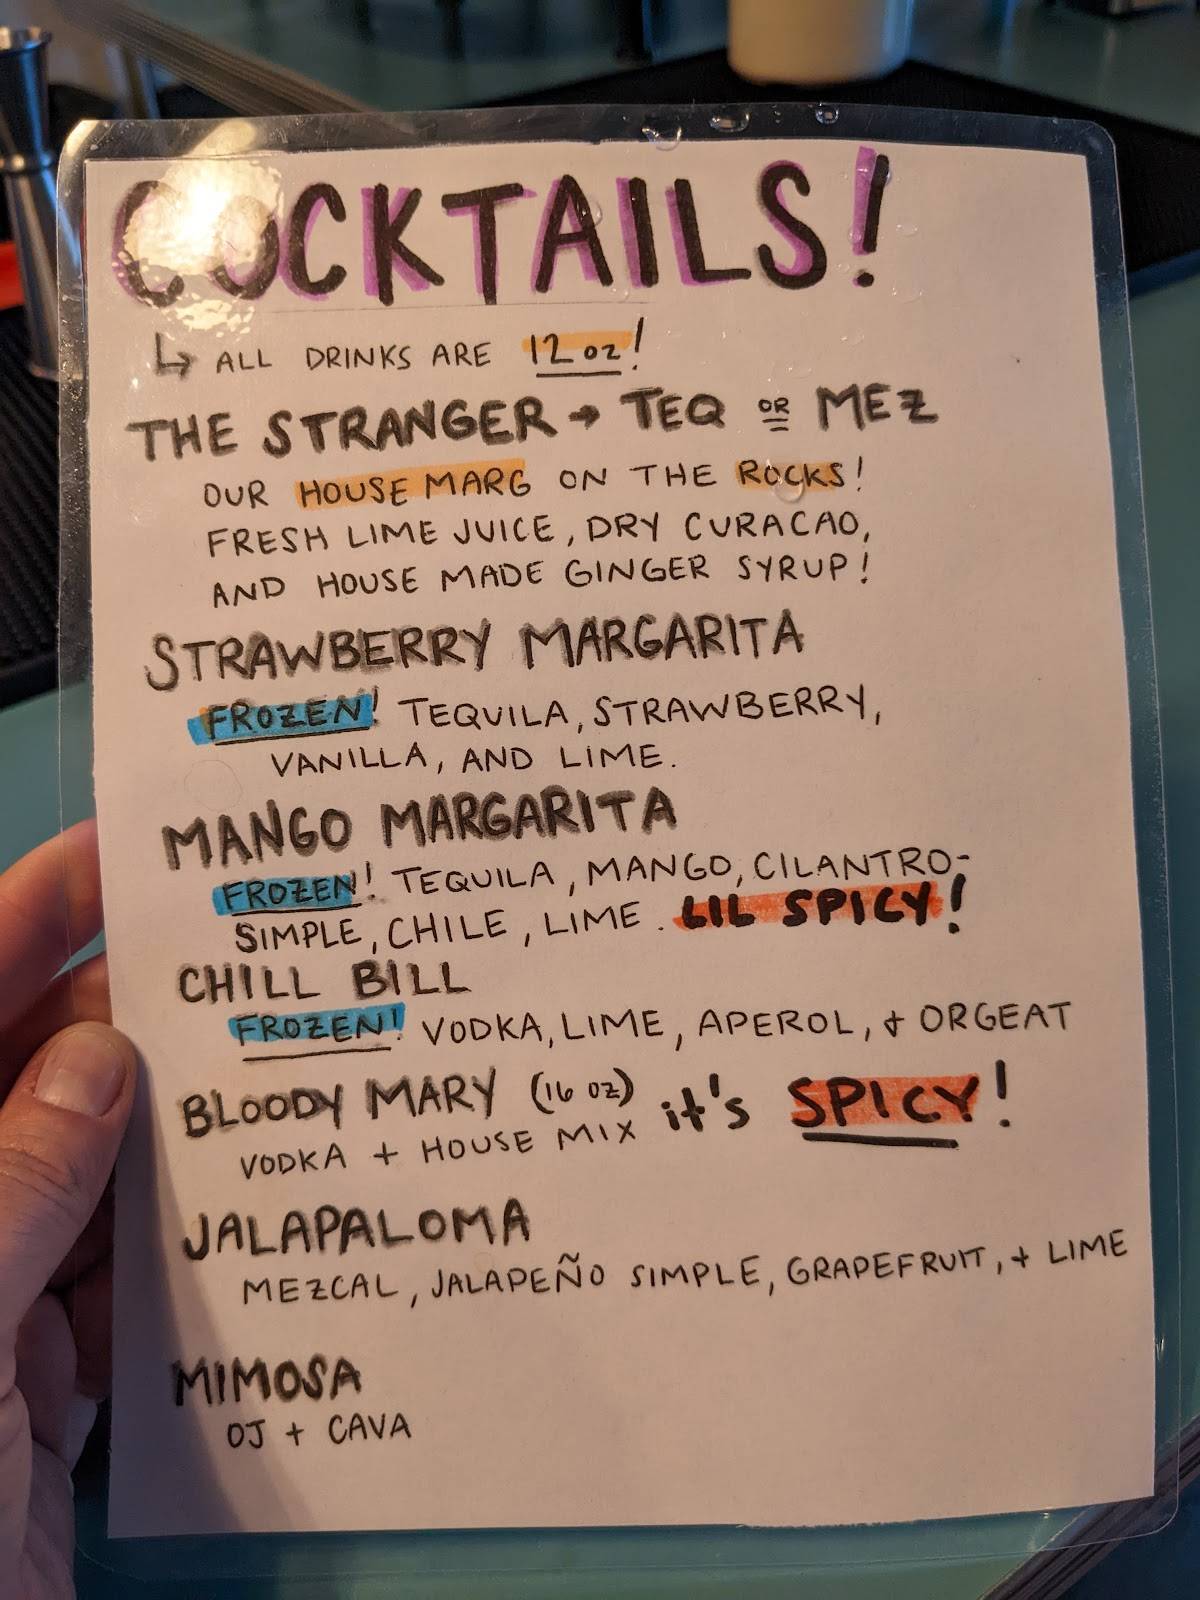 COCKTAILS!
↳ ALL DRINKS ARE 12 oz!
THE STRANGER → TEQ OR MEZ
OUR HOUSE MARG ON THE ROCKS!
FRESH LIME JUICE, DRY CURACAO,
AND HOUSE MADE GINGER SYRUP!
STRAWBERRY MARGARITA
FROZEN! TEQUILA, STRAWBERRY,
VANILLA, AND LIME.
MANGO MARGARITA
FROZEN! TEQUILA, MANGO, CILANTRO-
SIMPLE, CHILE, LIME. LIL SPICY!
CHILL BILL
FROZEN! VODKA, LIME, APEROL, + ORGEAT
BLOODY MARY (16 oz) it's SPICY!
VODKA + HOUSE MIX
JALAPALOMA
MEZCAL, JALAPEÑO SIMPLE, GRAPEFRUIT, + LIME
MIMOSA
OJ + CAVA